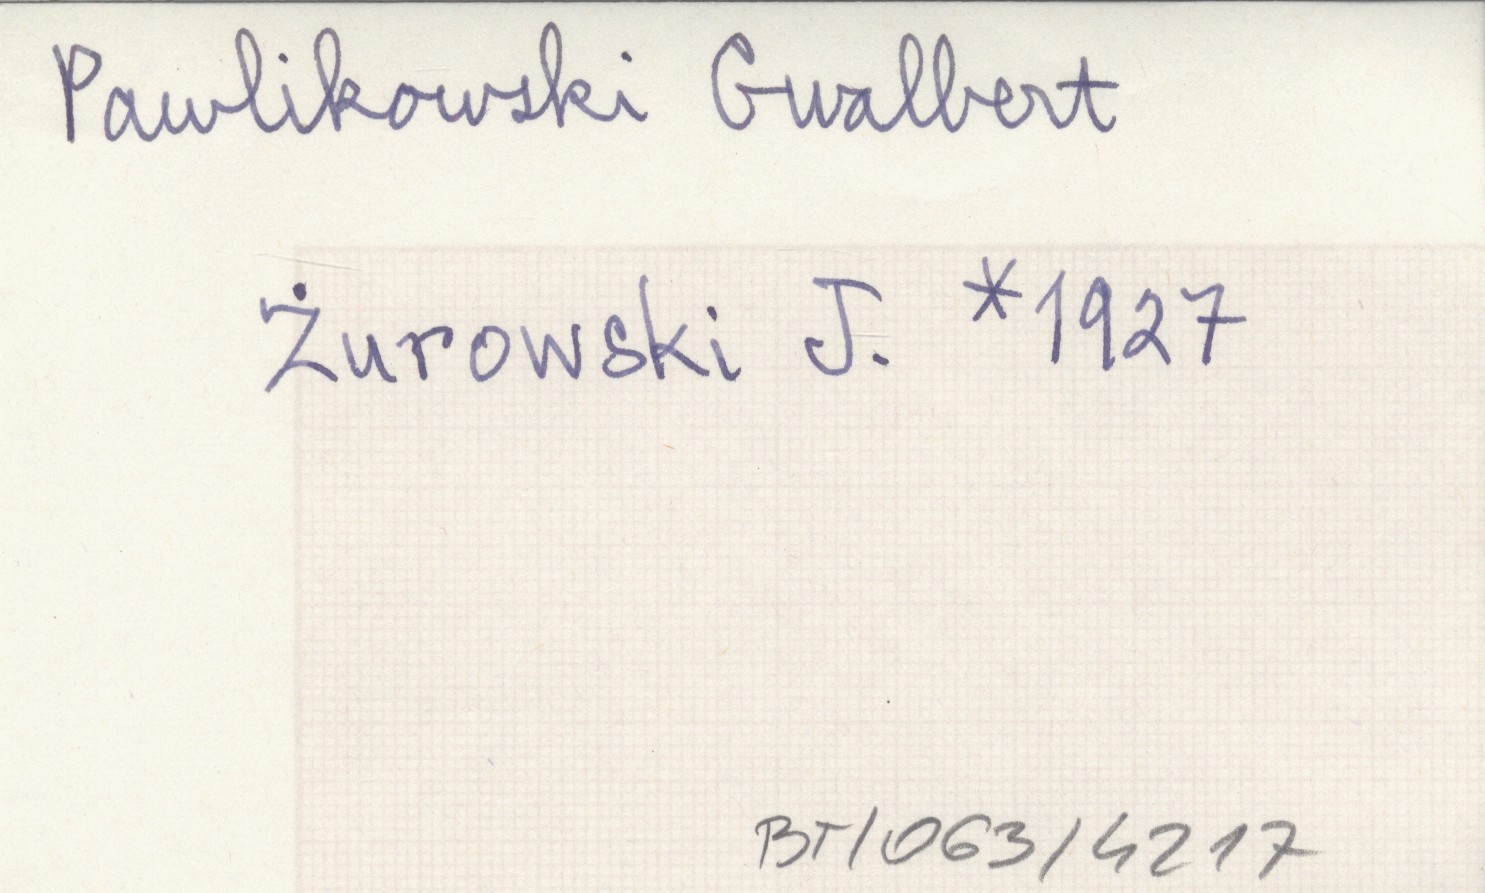 Pawlikowski Gwalbert
Żurowski J. *1927
BT/063/4217